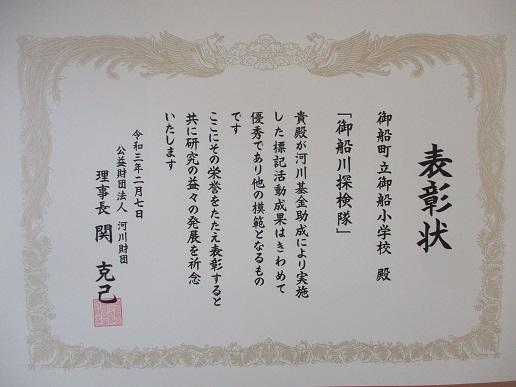 表彰状
御船町立御船小学校 殿
「御船川探検隊」
貴殿が河川基金助成により実施
した標記活動成果はきわめて
優秀であり他の模範となるもの
です
ここにその栄誉をたたえ表彰すると
共に研究の益々の発展を祈念
いたします
令和三年二月七日
公益財団法人 河川財団
理事長 関 克己